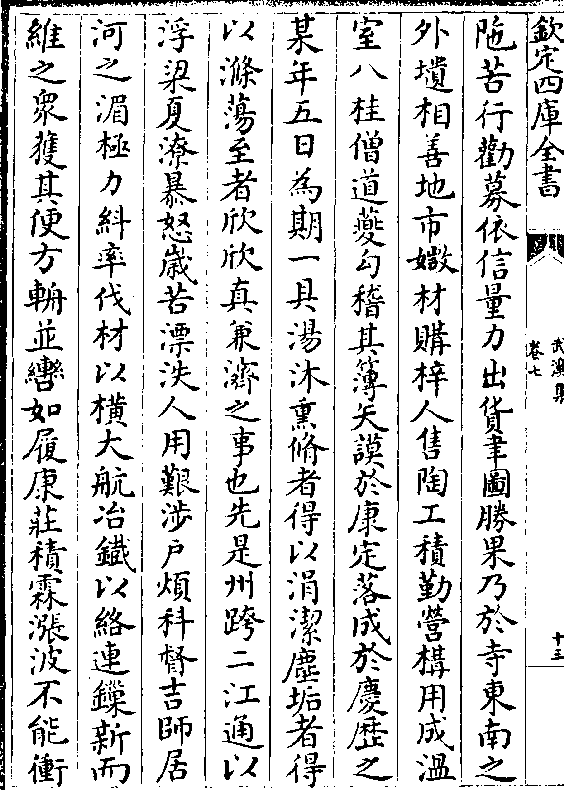 欽定四庫全書
武溪集
卷七
十三
陁苦行勸募依信量力出貨聿圖勝果乃於寺東南之
外壝相善地市媺材購梓人售陶工積勤營構用成溫
室八桂僧道夔勾稽其簿矢謨於康定落成於慶歴之
某年五日為期一具湯沐熏脩者得以涓潔塵垢者得
以滌蕩至者欣欣真兼濟之事也先是州跨二江通以
浮梁夏潦暴怒嵗苦漂泆人用艱涉户煩科督吉師居
河之湄極力糾率伐材以横大航冶鐵以絡連鏁新而
維之衆獲其便方軿並轡如履康莊積霖漲波不能衝